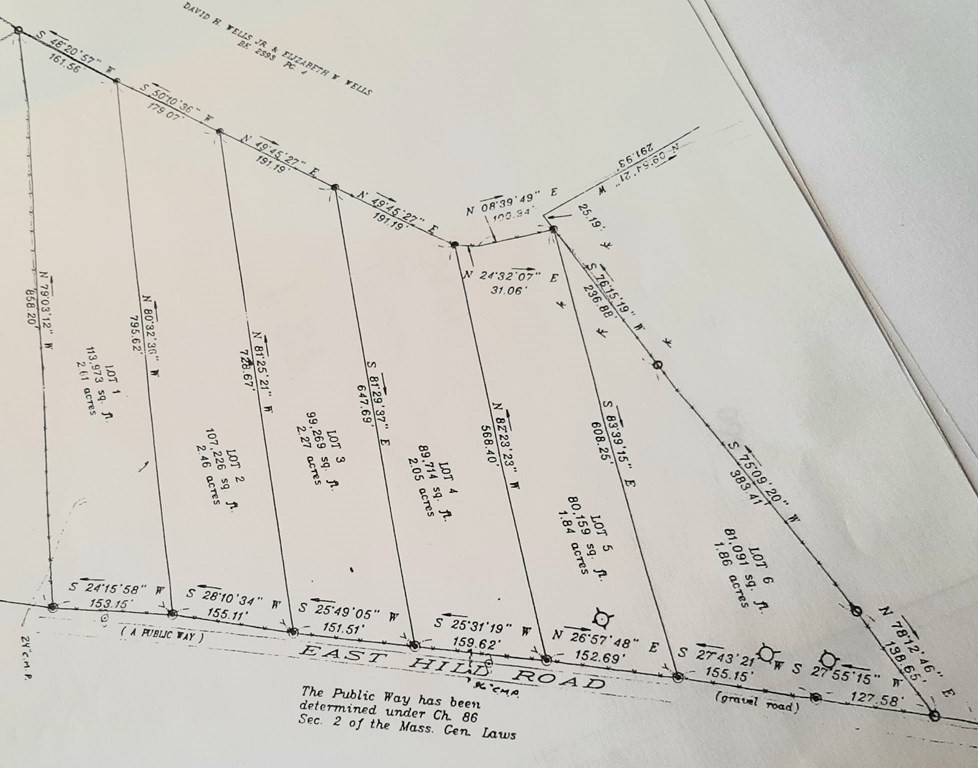 DAVID H WELLS JR. & ELIZABETH W WELLS
BK 2593 PG. 4
S 46°20'57" W
161.56
S 50°10'36" W
179.07'
N 49°45'27" E
191.19'
N 49°45'27" E
191.19'
N 08°39'49" E
100.34'
N 24°32'07" E
31.06'
25.19'
291.93'
S 76°15'19" W
236.88'
S 75°09'20" W
383.41'
N 78°12'46" E
N 79°03'12" W
858.20'
N 80°32'36" W
795.62'
N 81°25'21" W
728.67'
S 81°29'37" E
647.69'
N 82°23'23" W
568.40'
S 83°39'15" E
608.25'
LOT 1
113,973 sq. ft.
2.61 acres
LOT 2
107,226 sq. ft.
2.46 acres
LOT 3
99,269 sq. ft.
2.27 acres
LOT 4
89,714 sq. ft.
2.05 acres
LOT 5
80,159 sq. ft.
1.84 acres
LOT 6
81,091 sq. ft.
1.86 acres
S 24°15'58" W
153.15'
S 28°10'34" W
155.11'
S 25°49'05" W
151.51'
S 25°31'19" W
159.62'
N 26°57'48" E
152.69'
S 27°43'21" W
155.15'
S 27°55'15" W
127.58'
(A PUBLIC WAY)
EAST HILL ROAD
(gravel road)
24" C.M.P.
C.M.P.
The Public Way has been
determined under Ch. 86
Sec. 2 of the Mass. Gen. Laws